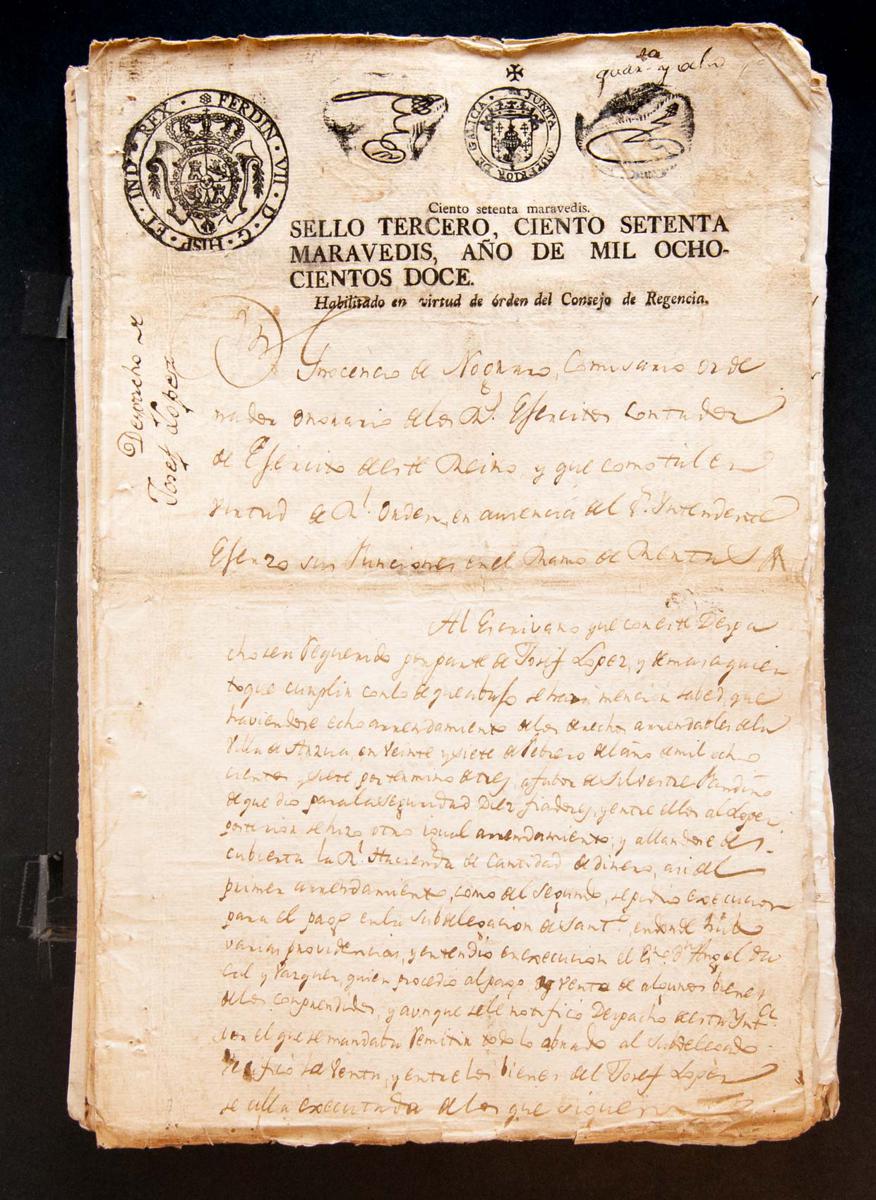 quar.ta y ocho
FERDIN · VII · D · G · HISP · ET · IND · REX ·
JUNTA SUPERIOR DE GALICIA ·
Ciento setenta maravedis.
SELLO TERCERO, CIENTO SETENTA
MARAVEDIS, AÑO DE MIL OCHO-
CIENTOS DOCE.
Habilitado en virtud de órden del Consejo de Regencia.
Derrecho de
Josef Lopez
Inocencio de Noguera, Comisario orde
nador onorario de los R.s Exercitos Contador
de Exercito de este Reino, y que como tal en
virtud de R.l Orden, en ausencia del S.r Yntendente
Exerzo sus funciones en el Ramo de Rentas
Al Escrivano que con este Despa
cho sea requerido por parte de Josef Lopez, y demas a quien
toque cumplir con lo de que abajo se hara mencion sabed, que
haviendose echo arrendamiento de los derechos arrendables de la
Villa de Anzua, en Veinte y siete de Febrero del año de mil ocho
cientos y siete por termino de tres, a fabor de Silvestre Pandiño
de que dio para la seguridad Diez fiadores, y entre ellos al Lopez
posterior se hizo otro igual arrendamiento, y allandose des
cubierta la R.l Hacienda de Cantidad de dinero, asi del
primer arrendamiento, como del Segundo, se pidio execucion
para el pago en la Subdelegacion de Sant.o endonde hubo
varias providencias, y entendio en execucion el Es.no d.n Angel
Gil y Varquez, quien procedio al pago y venta de algunos bienes
de los comprendidos, y aunque se le notificó Despacho de esta Ynt.a
por el que se mandaba remitir todo lo obrado al Subdelegado
verificó la Venta, y entre los bienes del Josef Lopez
se alla executada de los que siguen